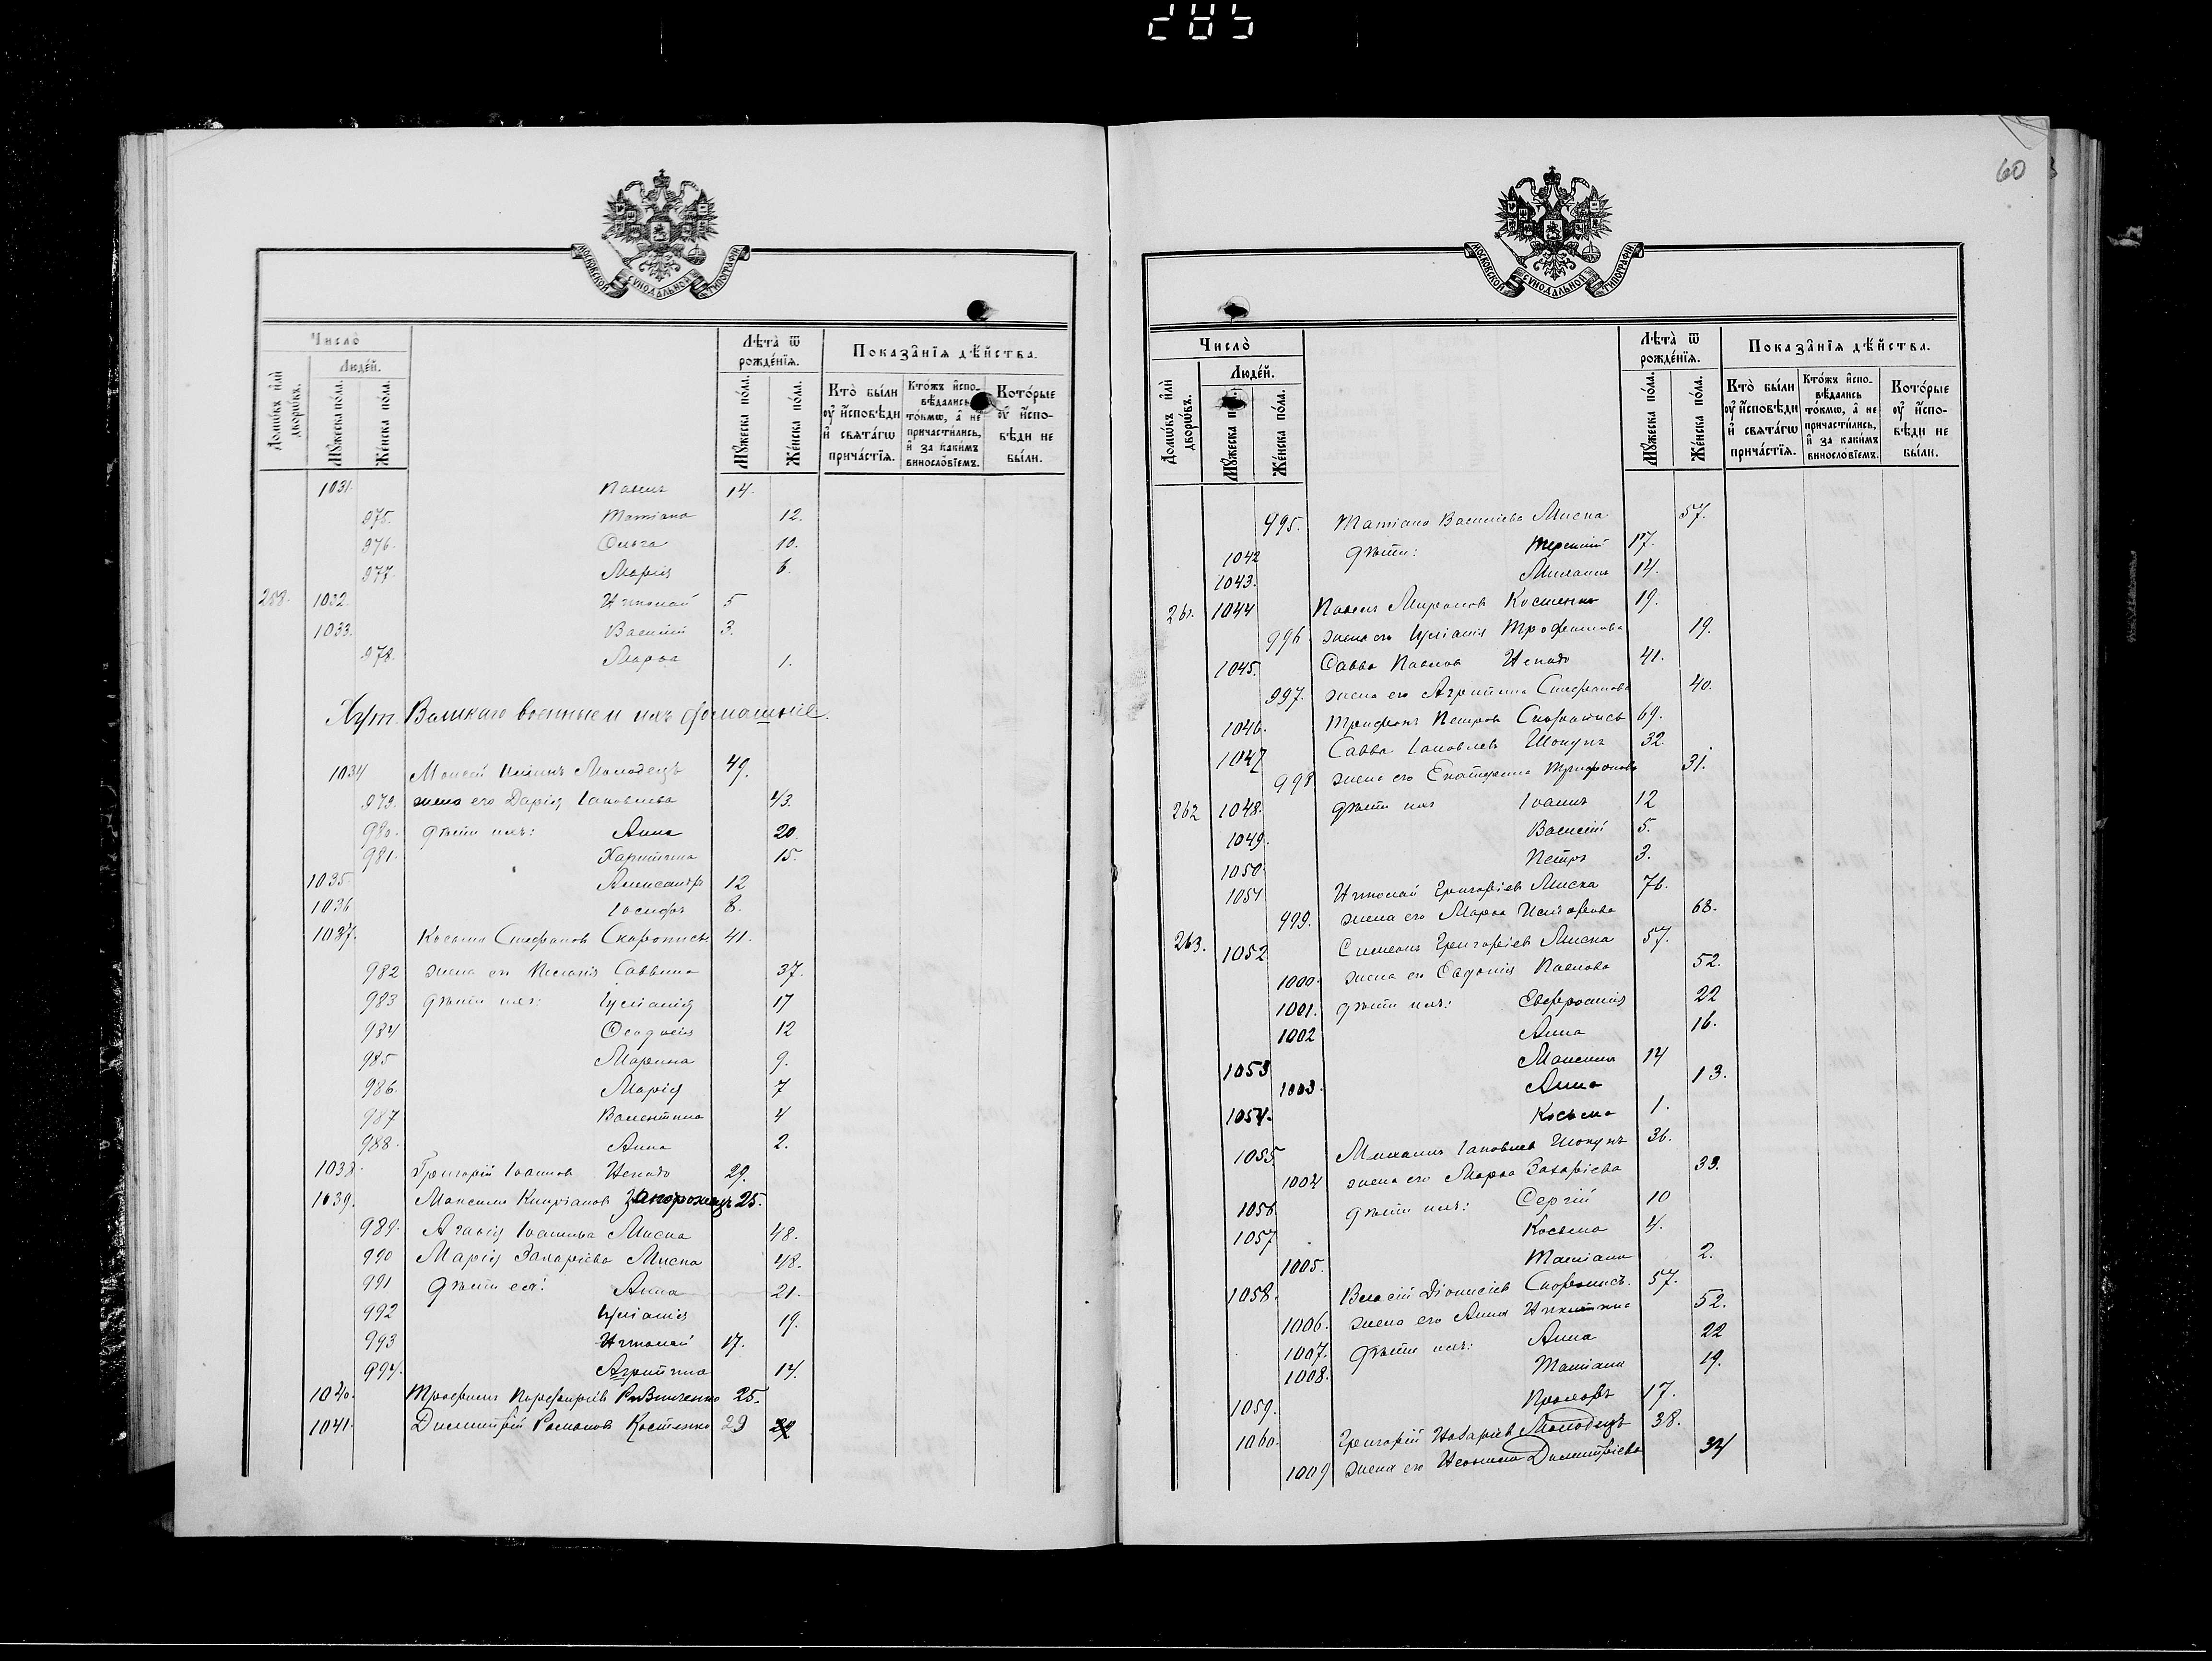 285
60
МОСКОВСКОЙ СѴНОДАЛЬНОЙ ТИПОГРАФІИ
Число̀
Домѡ́въ и҆лѝ дворѡ́въ.
Люде́й.
Мꙋ́жеска по́ла.
Же́нска по́ла.
Лѣта̀ ѿ рожде́нїѧ.
Мꙋ́жеска по́ла.
Же́нска по́ла.
Показа̑нїѧ дѣ́йства.
Кто̀ бы́ли ᲂу҆ и҆́сповѣди и҆ свѧта́гѡ прича́стїѧ.
Кто́жъ и҆спо-вѣ́дались то́кмѡ, а҆ не причасти́лись, и҆ за каки́мъ винослові́емъ.
Кото́рые ᲂу҆ и҆́спо-вѣди не бы́ли.
1031. Павелъ 14.
975. Татіана 12.
976. Ольга 10.
977. Марія 6.
258. 1032. Николай 5
1033. Василій 3.
978. Марѳа 1.
Хут. Великаго военные и ихъ домашніе.
1034 Моисей Молодецъ 49.
979. жена его Дарія Іаковлева 43.
980. дѣти ихъ: Анна 20
981. Харитина 15.
1035 Александръ 12
1036 Іосифъ 8.
1037. Косьма Стефановъ Скоропись 41.
982 жена его Пелагія Саввина 37.
983 дѣти ихъ: Іуліанія 17
984 Ѳеодосія 12
985 Марина 9.
986. Марія 7
987 Валентина 4
988. Анна 2.
1038. Григорій Іоанновъ 29.
1039. Максимъ Кипріановъ Запорожецъ 25.
989. Агаѳія Іоаннова Миска 48.
990 Марія Захаріева Миска 48.
991 дѣти ея: Анна 21.
992 Іуліанія 19.
993 Николай 17.
994. Агриппина 14.
1040. Трофимъ Порфиріевъ 25.
1041. Димитрій Романовъ Костенко 29
МОСКОВСКОЙ СѴНОДАЛЬНОЙ ТИПОГРАФІИ
Число̀
Домѡ́въ и҆лѝ дворѡ́въ.
Люде́й.
Мꙋ́жеска по́ла.
Же́нска по́ла.
Лѣта̀ ѿ рожде́нїѧ.
Мꙋ́жеска по́ла.
Же́нска по́ла.
Показа̑нїѧ дѣ́йства.
Кто̀ бы́ли ᲂу҆ и҆́сповѣди и҆ свѧта́гѡ прича́стїѧ.
Кто́жъ и҆спо-вѣ́дались то́кмѡ, а҆ не причасти́лись, и҆ за каки́мъ винослові́емъ.
Кото́рые ᲂу҆ и҆́спо-вѣди не бы́ли.
995. Татіана Василіева Миска 57.
1042 дѣти: Терентій 17.
1043. Михаилъ 14.
261. 1044 Павелъ Мироновъ Костенко 19.
996 жена его Іуліанія Трофимова 19.
1045. Савва Павловъ 41.
997. жена его Агриппина Стефанова 40.
1046. Трифонъ Петровъ Скоропись 69.
1047 Савва Іаковлевъ Шокунъ 32.
998 жена его Екатерина Трифонова 31.
262 1048. дѣти ихъ Іоаннъ 12
1049. Василій 5.
1050. Петръ 3.
1051 Николай Григоріевъ Миска 76.
999. жена его Марѳа 68.
263. 1052. Симеонъ Григоріевъ Миска 57.
1000. жена его Евдокія Павлова 52.
1001. дѣти ихъ: Евфросинія 22
1002 Анна 16.
1053 Максимъ 14
1003. Анна 13.
1054. Косьма 1.
1055 Михаилъ Іаковлевъ Шокунъ 36.
1004 жена его Марѳа Захаріева 33.
1056. дѣти ихъ: Сергій 10
1057 Косьма 4.
1005. Татіана 2.
1058. Власій Діонисіевъ Скоропись. 57.
1006. жена его Анна Никитина 52.
1007. дѣти ихъ: Анна 22
1008. Татіана 19.
1059. Прохоръ 17.
1060. Григорій Молодецъ 38.
1009 жена его Димитріева 34